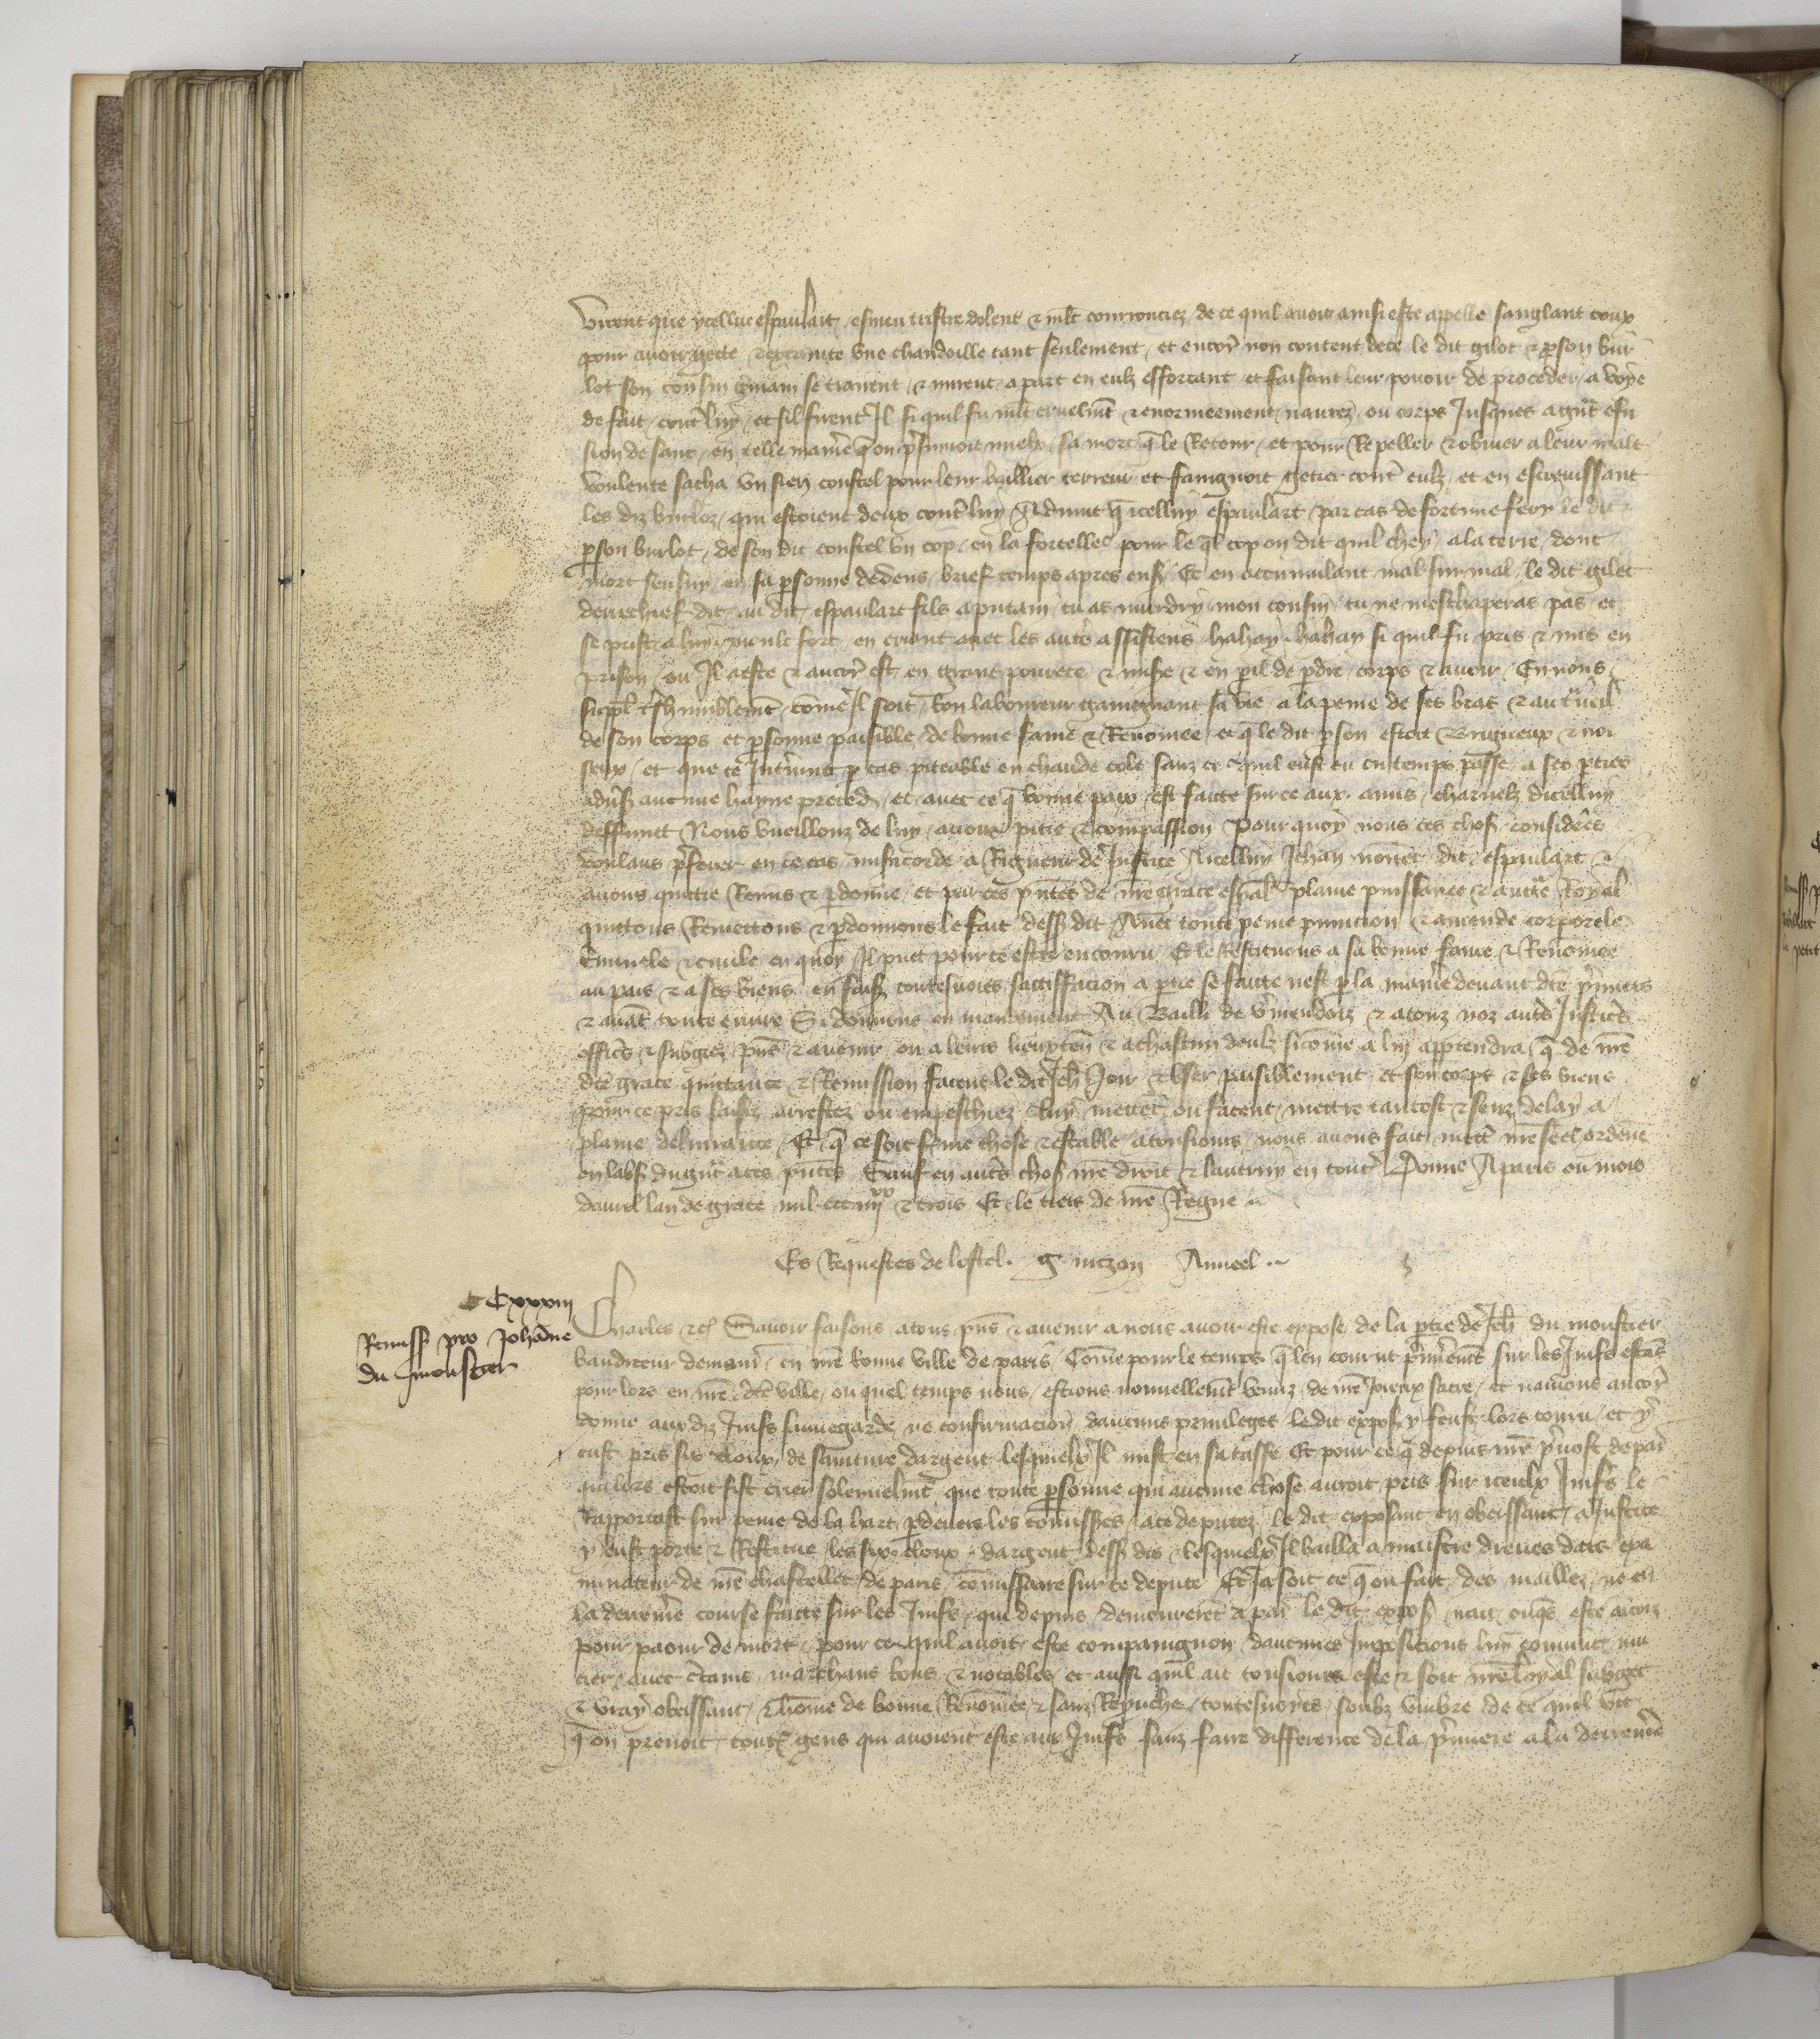 virent que ycellui espaulart esmeu tristre dolent & mlt courrouciez de ce quil avoit ainsi este apelle sanglant coux
pour avoir gette & extainte une chandoille tant seulement / et encor non content de ce le dit gilot & pson bur
lot son cousin gmain se trairent & mirent apart en eulz efforcant et faisant leur povoir de proceder a voye
de fait contre luy / et sil firent Il si quil fu mlt cruelmt & enormeement navrez ou corps Jusques a gnt efu
sion de sanc / en telle maniere q on psumoit mielx sa mort q le Retour / et pour Repeller & obvier a leur male
voulente sacha un sien coustel pour leur baillier terreur et faingnoit getier contre eulz / et en escrevissant
les diz burloz / qui estoient deux contre luy Advint q icelluy espaulart par cas de fortune fery le dit
pson burlot / de son dit coustel un cop en la forcelle pour le ql cop on dit quil chey a la terre / dont
mort sensuy en sa psonne dedens brief temps apres ens Et en accumulant mal sur mal le dit gilet
derrechief dit au dit espaulart filz a putain tu as murdry mon cousin tu ne meschaperas pas et
se prist a luy moult fort en criant avec les autres assistens hahay hahay si quil fu pris & mis en
prison ou Il a este & ancor est en grant povrete & mise & en pil de pdre corps & avoir / Et nous
suppl tshumblemt come Il soit bon laboureur gaingnant sa vie a la peine de ses bras & au tvueil
de son corps et psonne paisible de bonne fame & Renomee et q le dit pson estoit Brigueux & noi
seux / et que ce Intvint p cas piteable en chaude cole sanz ce quil eust eu en temps passe a ses pties
advs aucune hayne preced / et avec ce q bonne paix est faicte sur ce aux amis charnelz dicelluy
deffunct Nous vueillonz de luy avoir pitie & compassion Pour quoy nous ces chos considers
voulans pferer en ce cas misicorde a Rigueur de Justice Aicelluy Jehan noiret dit espaulart
avons quitte Remis & pdonne / et par ces pntes de nre grace espal plaine puissance & auctte Royal
quittons Remettons & pdonnons le fait dess dit Avec toute peine punicion & amende corporele
Criminele & civile en quoy Il puet pour ce estre encouru Et le Restituons a sa bonne fame & Renomee
au pais & a ses biens en fais toutesvoies satisffacion a ptie se faicte nest p la maniere devant dce pmiers
& avat toute euvre Si donnons en mandement Au Bailli de Vmendois & a touz noz autrs Justicrs
officrs & subgiez pns & avenir ou a leurs lieuxten & a chascun deulz sicome a luy apptendra q de nre
dce grace quittance & Remission facent le dit Jeh Joir & user paisiblement et son corps & ses biens
pour ce pris saisiz arrestez ou empeschiez luy mettet ou facent mettre tantost & senz delay a
plaine delivrance Et q ce soit ferme chose & estable a tousiours nous avons fait mettre nre seel ordene
en labs du gnt a ces pntes Sauf en autrs chos nre droit & lautruy en toutes Donne A paris ou mois
davril lan de grace mil ccc iiiixx & trois Et le tiers de nre Regne
Es Requestes de lostel. G. mezon Anneel
CCxxxiii
Remiss pro Johanne
du Moustier
Charles &c Savoir faisons a tous pns & avenir a nous avoir este expose de la ptie de Jeh du moustier
baudreur demour en nre bonne ville de paris Come pour le temps q len courut pmieremt sur les Juifs estas
pour lors en nre dce ville / ou quel temps nous estions nouvellemt venuz de nre Joieux sacre / et navions ancor
donne aux diz Juifs sauvegarde ne confirmacion daucuns privileges le dit expos y feust lors couru et y
eust pris six cloux de sainture dargent lesquielx Il mist en sa tasse Et pour ce q depuis nre pvost de par
qui lors estoit fist crier solemnelmt que toute psonne qui aucune chose auroit pris sur iceulx Juifs le
Rapportast sur peine de la hart pdevers les comisses a ce deputez le dit exposant en obeissant a Justice
y eust porte & Restitue les six cloux dargent dess dis & lesquielx Il bailla a maistre dreues dars exa
minateur de nre chastellet de paris comissaire sur ce depute Et Ja soit ce q ou fait des maillez ne en
la derreniere course faicte sur les Juifs qui depuis demourerent a par le dit expos nait onqs este aincoiz
pour paour de mort pour ce quil avoit este compaignon daucunes Imposicions luy convint mu
cier avec ctains marchans bons & notables et aussi quil ait tousiours este & soit nre loyal subget
& vray obeissant & home de bonne Renomee & sanz Reprouche toutesvoyes soubz umbre de ce quil vit
q on prenoit toutes gens qui avoient este aux Juifs sanz faire difference de la pmiere a la derreniere